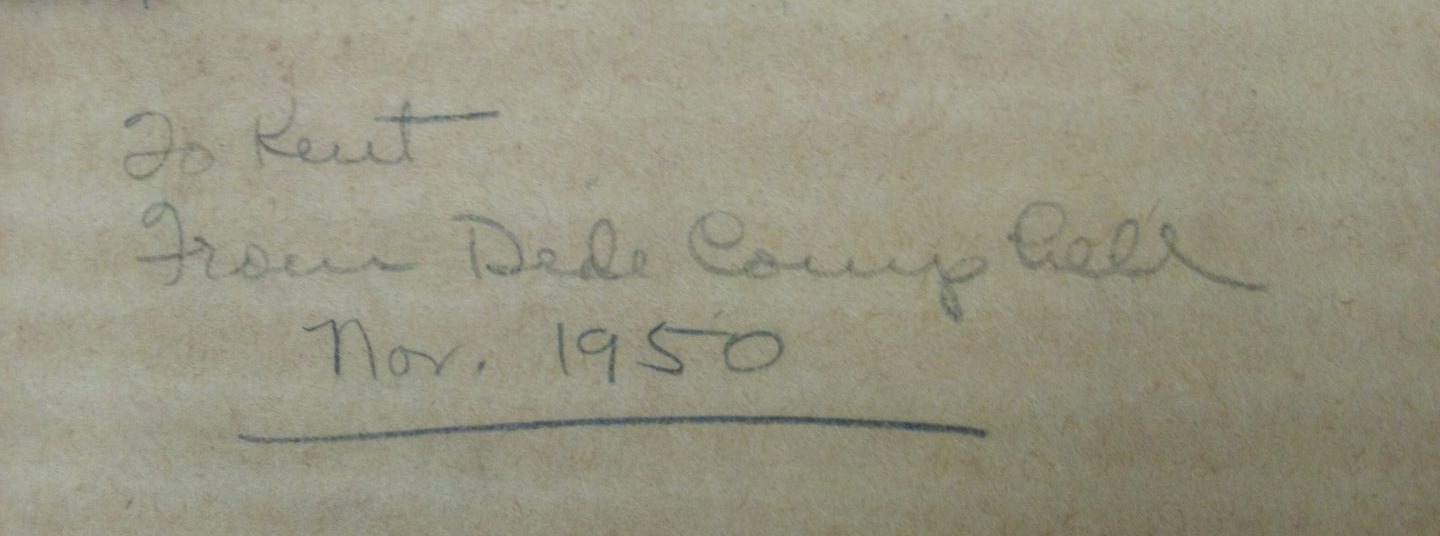 To Kent
From Dede Campbell
Nov. 1950